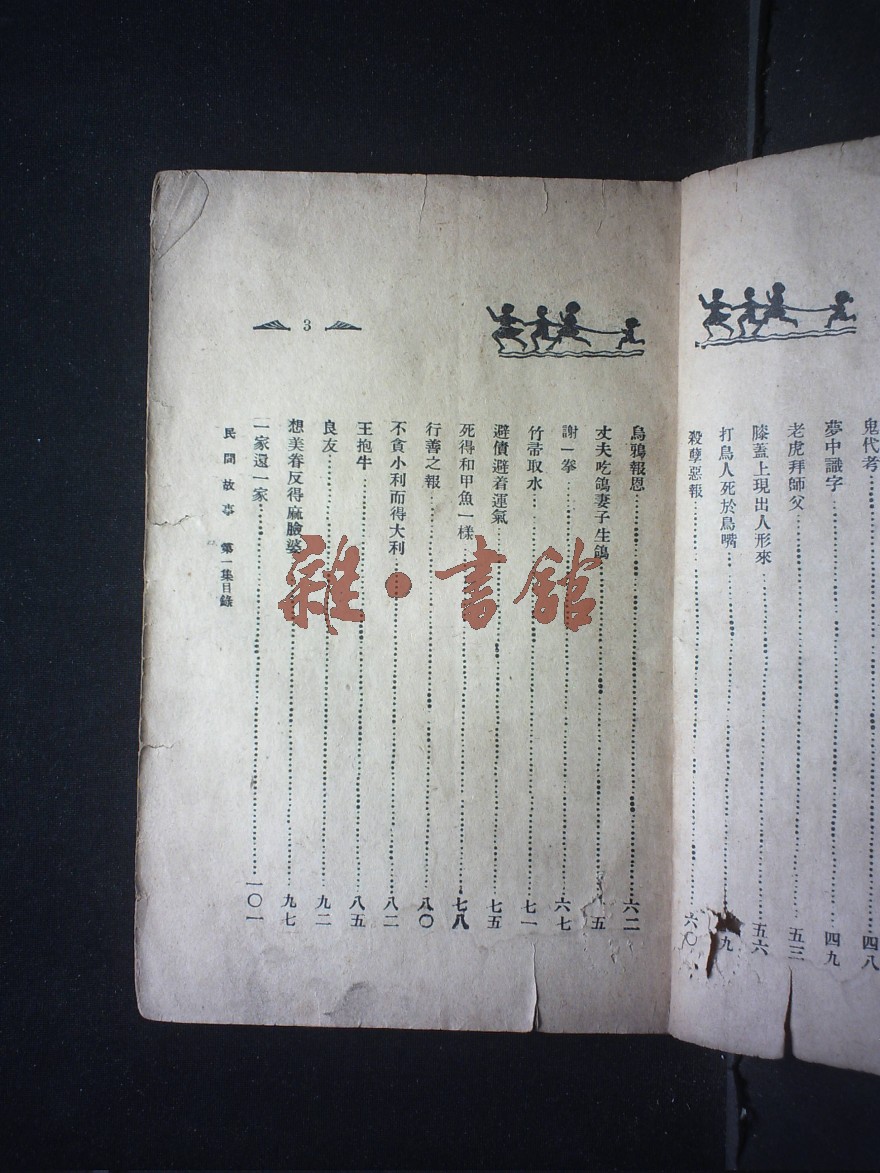 鬼代考 四八
夢中識字 四九
老虎拜師父 五三
膝蓋上現出人形來 五六
打鳥人死於鳥嘴 九
殺孽惡報 六〇
烏鴉報恩 六二
丈夫吃鴿妻子生鴿 五
謝一拳 六七
竹帚取水 七一
避債避着運氣 七五
死得和甲魚一樣 七八
行善之報 八〇
不貪小利而得大利 八二
王抱牛 八五
良友 九二
想美眷反得麻臉婆 九七
一家還一家 一〇一
民間故事 第一集目錄
3
雜·書館